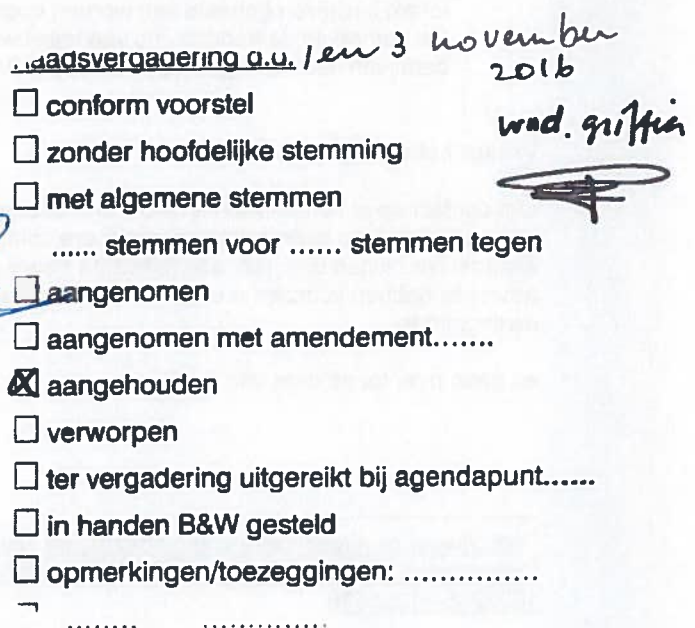 raadsvergadering d.d. 1 en 3 november
2016
wnd. griffier
☐ conform voorstel
☐ zonder hoofdelijke stemming
☐ met algemene stemmen
...... stemmen voor ...... stemmen tegen
☐ aangenomen
☐ aangenomen met amendement.......
☒ aangehouden
☐ verworpen
☐ ter vergadering uitgereikt bij agendapunt......
☐ in handen B&W gesteld
☐ opmerkingen/toezeggingen: ...............